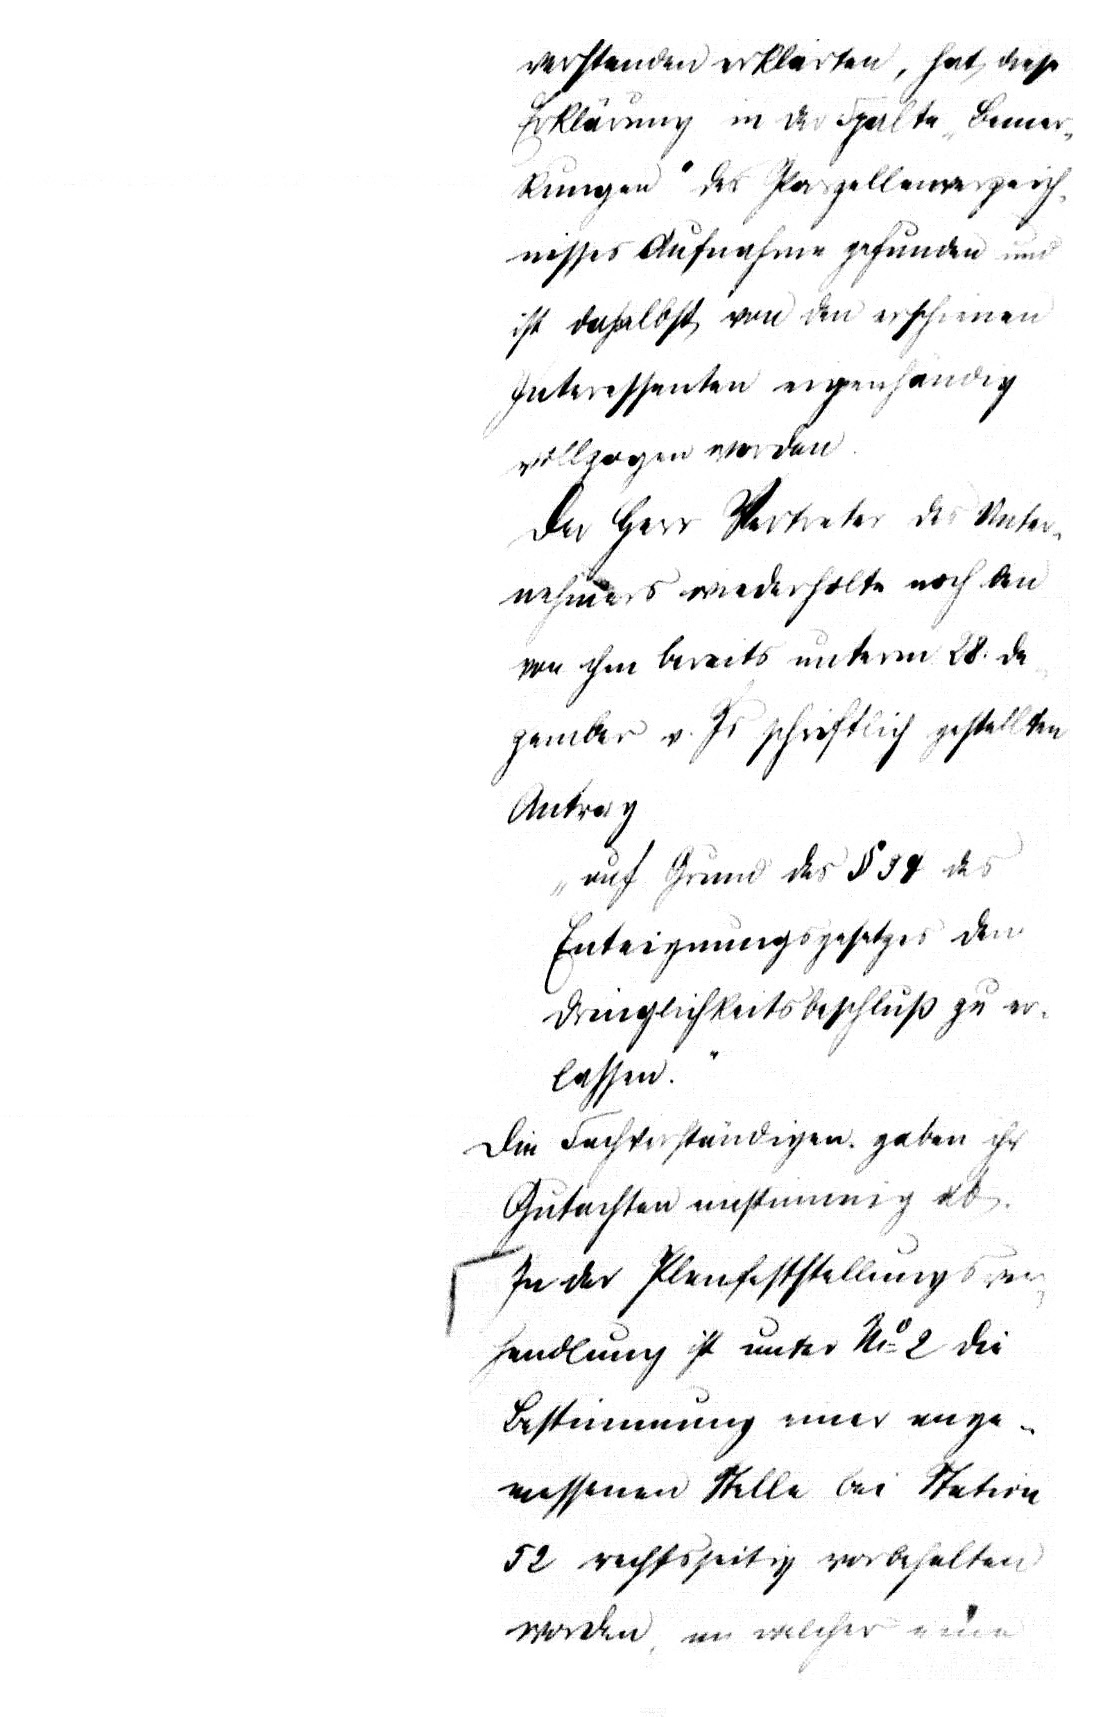 verstanden erklärten, hat diese
Erklärung in der Spalte „Bemer-
kungen" des Parzellenverzeich-
nisses Aufnahme gefunden und
ist daselbst von den erschienenen
Interessenten eigenhändig
vollzogen worden.
Der Herr Vertreter des Unter-
nehmers wiederholte noch den
von ihm bereits unterm 28. De-
zember v. Js schriftlich gestellten
Antrag
„auf Grund des § 34 des
Enteignungsgesetzes den
Dringlichkeitsbeschluß zu er-
lassen."
Die Sachverständigen gaben ihr
Gutachten einstimmig ab.
In der Planfeststellungsver-
handlung ist unter No 2 die
Bestimmung einer ange-
messenen Stelle bei Station
52 rechtsseitig vorbehalten
worden, an welcher eine